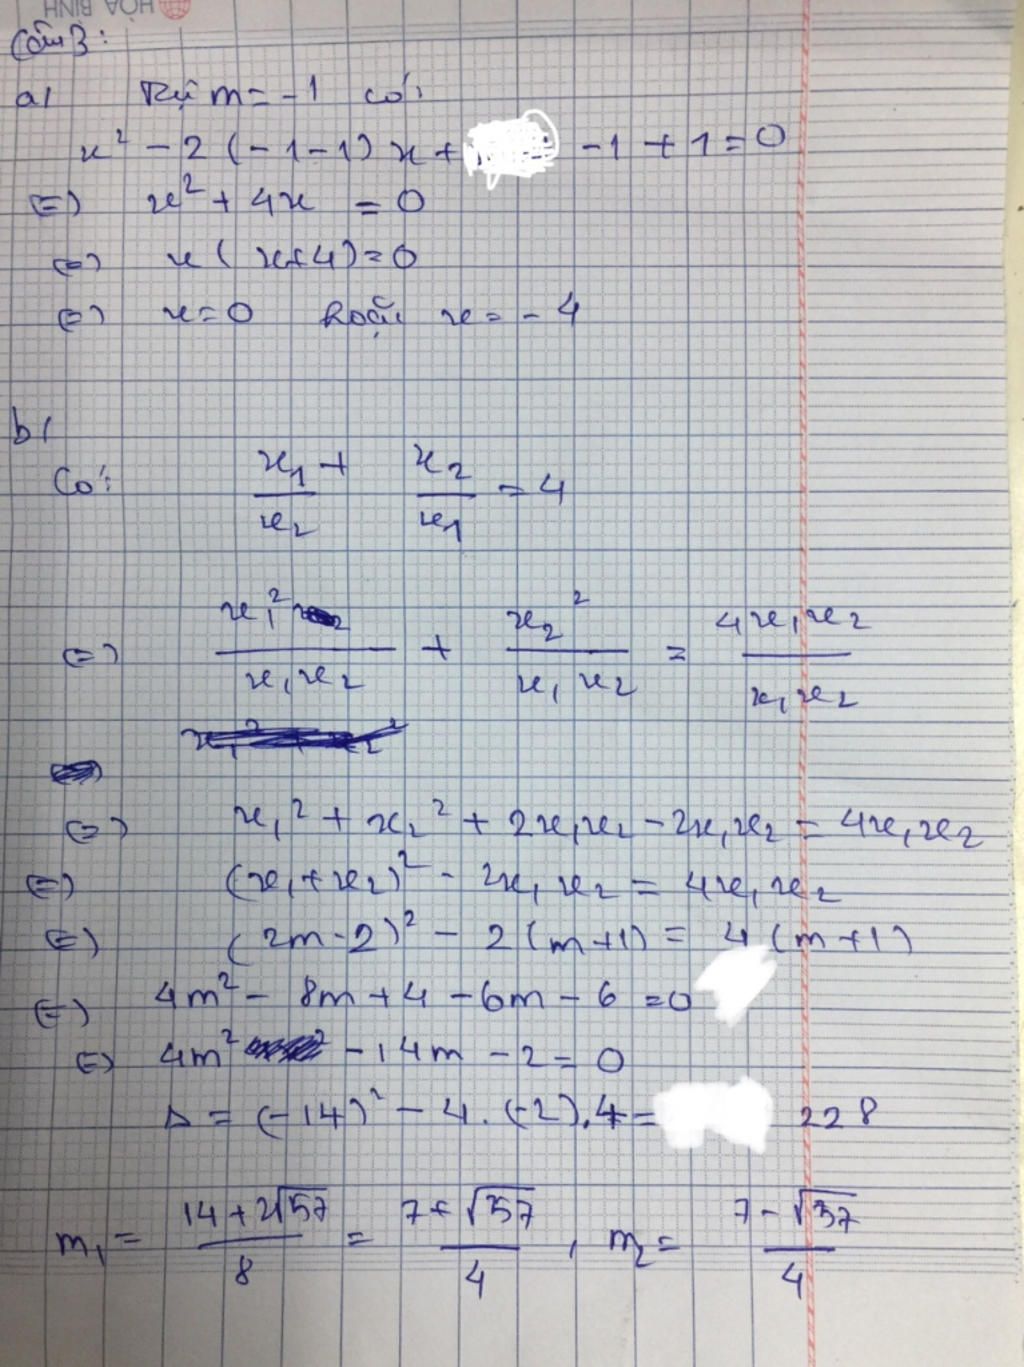 HÒA BÌNH
Câu 3:
a/ Thay m = -1 có:
x² - 2(-1-1)x + -1 + 1 = 0
(=) x² + 4x = 0
(=) x(x+4) = 0
(=) x = 0 hoặc x = -4
b/
Có: x₁/x₂ + x₂/x₁ = 4
(=) x₁²/x₁x₂ + x₂²/x₁x₂ = 4x₁x₂/x₁x₂
(=) x₁² + x₂² + 2x₁x₂ - 2x₁x₂ = 4x₁x₂
(=) (x₁+x₂)² - 2x₁x₂ = 4x₁x₂
(=) (2m-2)² - 2(m+1) = 4(m+1)
(=) 4m² - 8m + 4 - 6m - 6 = 0
(=) 4m² - 14m - 2 = 0
Δ = (-14)² - 4.(-2).4 = 228
m₁ = (14+2√57)/8 = (7+√57)/4 , m₂ = (7-√57)/4